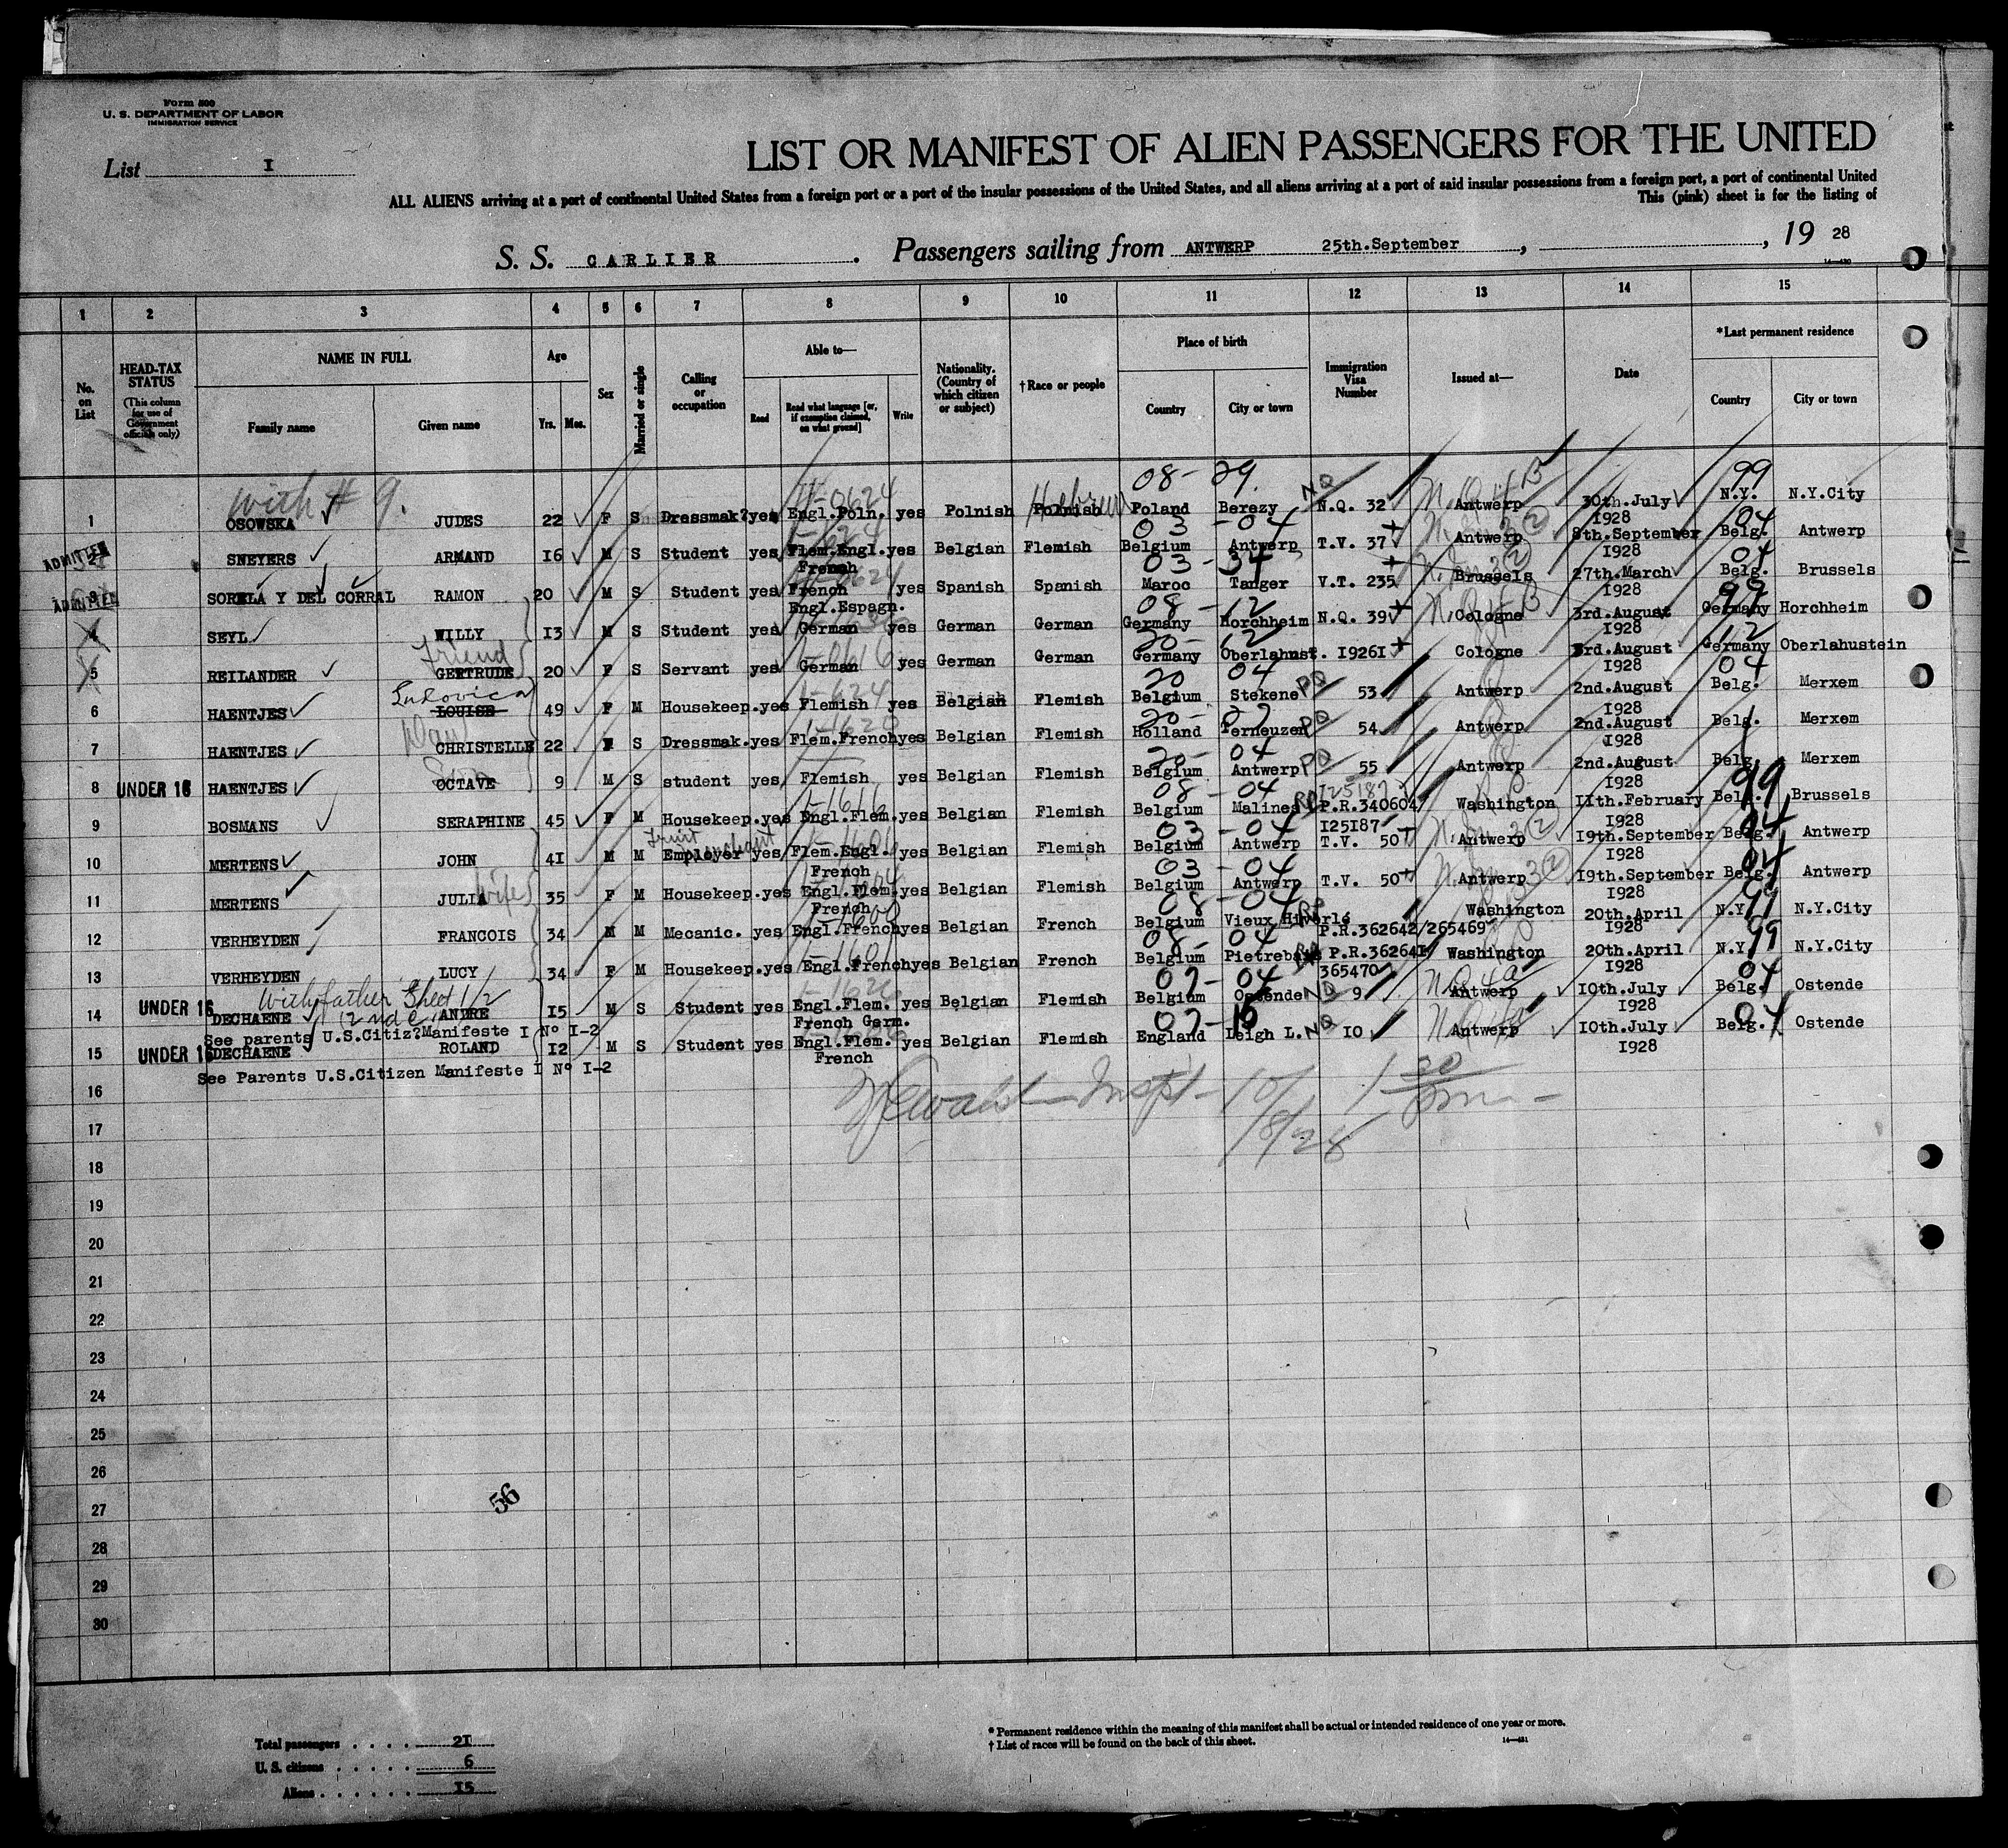 Form 500
U. S. DEPARTMENT OF LABOR
IMMIGRATION SERVICE
List I
LIST OR MANIFEST OF ALIEN PASSENGERS FOR THE UNITED
ALL ALIENS arriving at a port of continental United States from a foreign port or a port of the insular possessions of the United States, and all aliens arriving at a port of said insular possessions from a foreign port, a port of continental United
This (pink) sheet is for the listing of
S. S. CARLIER. Passengers sailing from ANTWERP 25th.September, , 19 28
1 2 3 4 5 6 7 8 9 10 11 12 13 14 15
No. on List
HEAD-TAX STATUS (This column for use of Government officials only)
NAME IN FULL Family name Given name
Age Yrs. Mos.
Sex
Married or single
Calling or occupation
Able to— Read Read what language [or, if exemption claimed, on what ground] Write
Nationality. (Country of which citizen or subject)
†Race or people
Place of birth Country City or town
Immigration Visa Number
Issued at—
Date
*Last permanent residence Country City or town
with # 9. 08- 29. NQ 99
1 OSOWSKA JUDES 22 F S Dressmak? yes Engl.Poln. yes Polnish Polnish Hebrew Poland Berezy N.Q. 32 Antwerp 30th.July 1928 N.Y. N.Y.City
03 - 04 04
ADMITTED 2 SNEYERS ARMAND 16 M S Student yes Flem.Engl. French yes Belgian Flemish Belgium Antwerp T.V. 37 Antwerp 8th.September 1928 Belg. Antwerp
03-34 04
ADMITTED 3 SORELA Y DEL CORRAL RAMON 20 M S Student yes French Engl.Espagn. yes Spanish Spanish Maroc Tanger V.T. 235 Brussels 27th.March 1928 Belg. Brussels
08-12 99
4 SEYL WILLY 13 M S Student yes German yes German German Germany Horchheim N.Q. 39 Cologne 3rd.August 1928 Germany Horchheim
Friend 20-12 12
5 REILANDER GERTRUDE 20 F S Servant yes German yes German German Germany Oberlahnst. 19261 Cologne 3rd.August 1928 Germany Oberlahustein
Ludovica 20 04 PQ 04
6 HAENTJES LOUISE 49 F M Housekeep. yes Flemish yes Belgian Flemish Belgium Stekene 53 Antwerp 2nd.August 1928 Belg. Merxem
Dau 20- 27 PQ
7 HAENTJES CHRISTELLE 22 F S Dressmak. yes Flem.French yes Belgian Flemish Holland Terneuzen 54 Antwerp 2nd.August 1928 Belg. Merxem
Son 20- 04 PQ
8 UNDER 16 HAENTJES OCTAVE 9 M S student yes Flemish yes Belgian Flemish Belgium Antwerp 55 Antwerp 2nd.August 1928 Belg. Merxem
08- 04 125187 99
9 BOSMANS SERAPHINE 45 F M Housekeep. yes Engl.Flem. yes Belgian Flemish Belgium Malines P.R.340604/ 125187 Washington 11th.February 1928 Belg. Brussels
Fruit merchant 03 - 04 04
10 MERTENS JOHN 41 M M Employer yes Flem.Engl. French yes Belgian Flemish Belgium Antwerp T.V. 50 Antwerp 19th.September 1928 Belg. Antwerp
wife 03 - 04 04
11 MERTENS JULIA 35 F M Housekeep. yes Engl.Flem. French yes Belgian Flemish Belgium Antwerp T.V. 50 Antwerp 19th.September 1928 Belg. Antwerp
08-04 99
12 VERHEYDEN FRANCOIS 34 M M Mecanic. yes Engl.French yes Belgian French Belgium Vieux Hiverlé P.R.362642/265469 Washington 20th.April 1928 N.Y. N.Y.City
08- 04 99
13 VERHEYDEN LUCY 34 F M Housekeep. yes Engl.French yes Belgian French Belgium Pietrebais P.R.362641/ 365470 Washington 20th.April 1928 N.Y. N.Y.City
With father Sheet 1/2 2nd c. 07-04 04
14 UNDER 16 DECHAENE ANDRE 15 M S Student yes Engl.Flem. French Germ. yes Belgian Flemish Belgium Ostende NQ 9 Antwerp 10th.July 1928 Belg. Ostende
See parents U.S.Citiz?Manifeste I N° I-2
07-16 04
15 UNDER 16 DECHAENE ROLAND 12 M S Student yes Engl.Flem. French yes Belgian Flemish England Leigh L. NQ 10 Antwerp 10th.July 1928 Belg. Ostende
See Parents U.S.Citizen Manifeste I N° I-2
16
17
18
19
20
21
22
23
24
25
26
27
28
29
30
10/8/28 1 30
56
Total passengers . . . . 21
U. S. citizens . . . . . 6
Aliens . . . . . . 15
* Permanent residence within the meaning of this manifest shall be actual or intended residence of one year or more.
† List of races will be found on the back of this sheet.